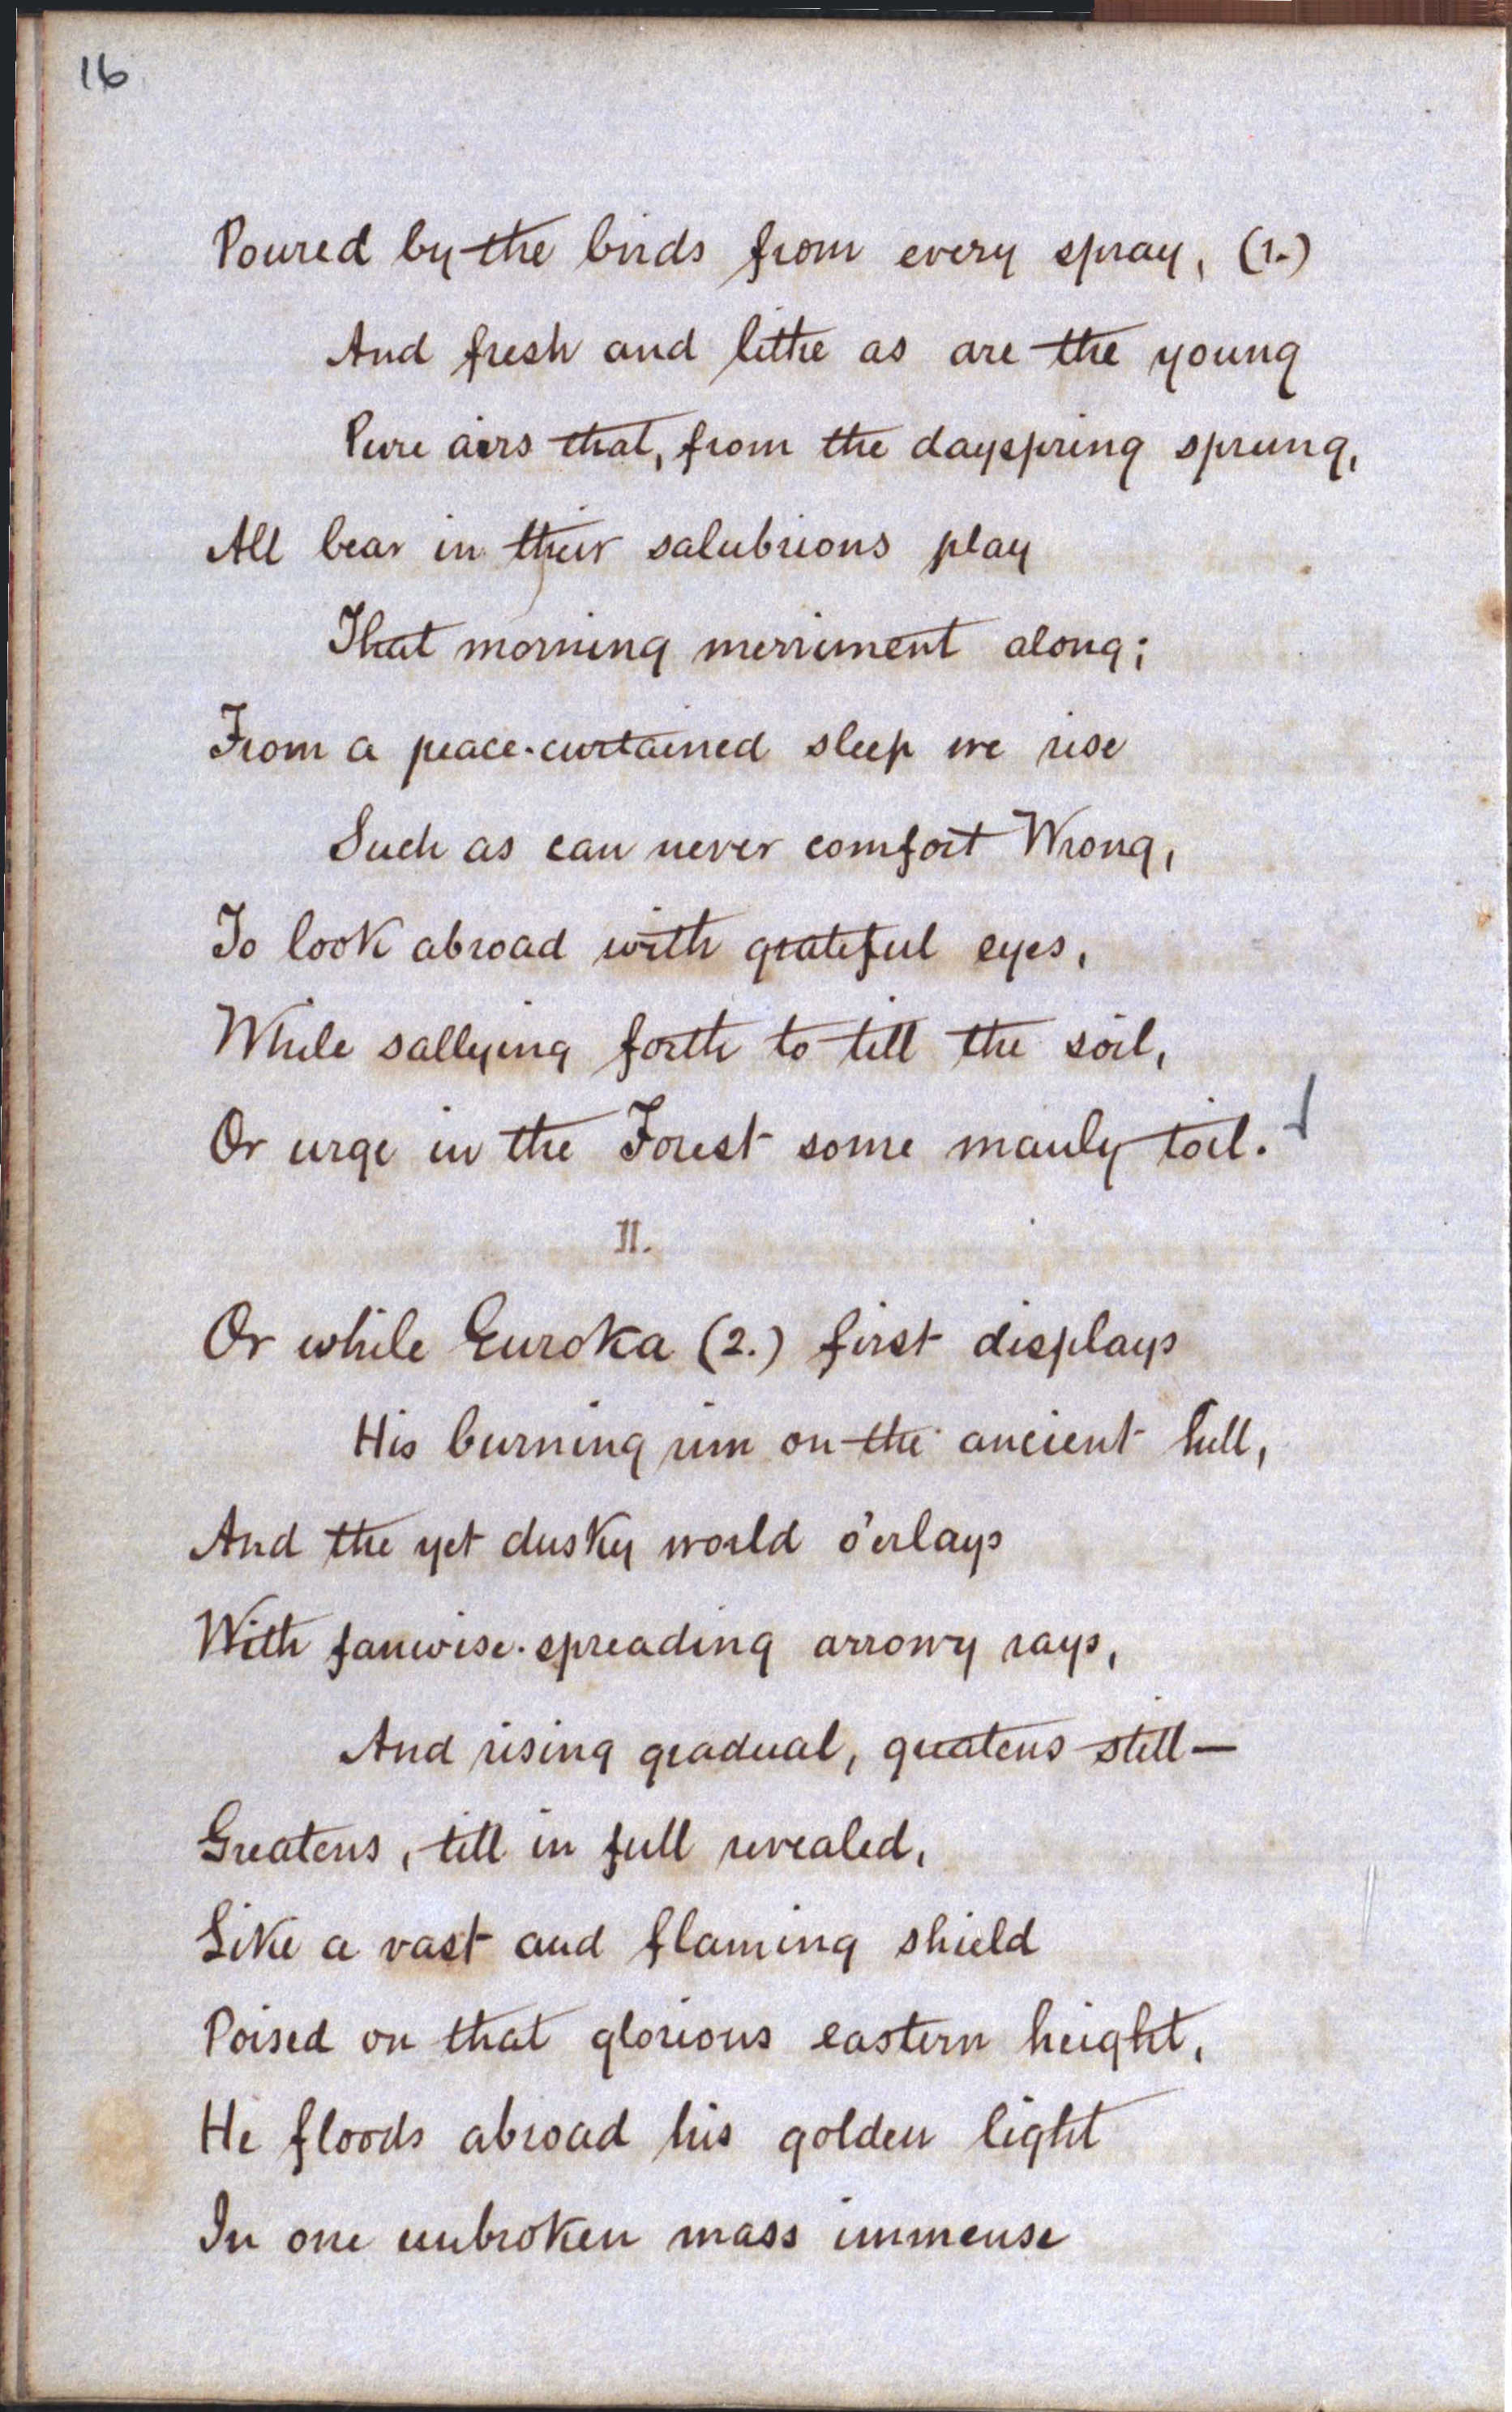 16
Poured by the birds from every spray, (1.)
And fresh and lithe as are the young
Pure airs that, from the dayspring sprung,
All bear in their salubrious play
That morning merriment along;
From a peace-curtained sleep we rise
Such as can never comfort Wrong,
To look abroad with grateful eyes,
While sallying forth to till the soil,
Or urge in the Forest some manly toil.
II.
Or while Euroka (2.) first displays
His burning rim on the ancient hill,
And the yet dusky world o'erlays
With fanwise-spreading arrowy rays,
And rising gradual, greatens still—
Greatens, till in full revealed,
Like a vast and flaming shield
Poised on that glorious eastern height,
He floods abroad his golden light
In one unbroken mass immense